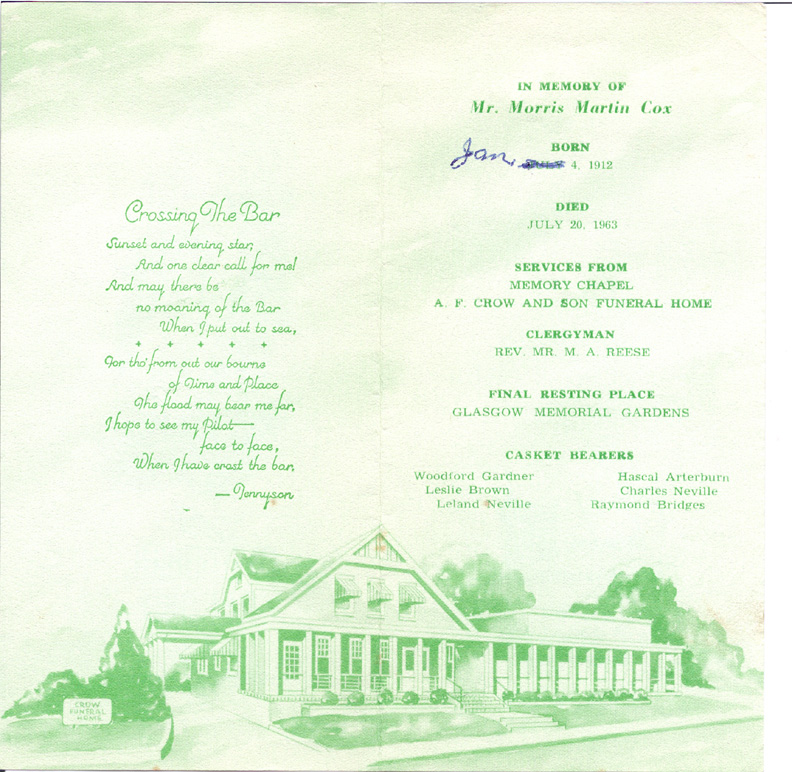 Crossing The Bar
Sunset and evening star,
And one clear call for me!
And may there be
no moaning of the Bar
When I put out to sea,
+ + + + +
For tho' from out our bourne
of Time and Place
The flood may bear me far,
I hope to see my Pilot—
face to face,
When I have crost the bar.
—Tennyson
IN MEMORY OF
Mr. Morris Martin Cox
BORN
Jan. 4, 1912
DIED
JULY 20, 1963
SERVICES FROM
MEMORY CHAPEL
A. F. CROW AND SON FUNERAL HOME
CLERGYMAN
REV. MR. M. A. REESE
FINAL RESTING PLACE
GLASGOW MEMORIAL GARDENS
CASKET BEARERS
Woodford Gardner Hascal Arterburn
Leslie Brown Charles Neville
Leland Neville Raymond Bridges
CROW
FUNERAL
HOME